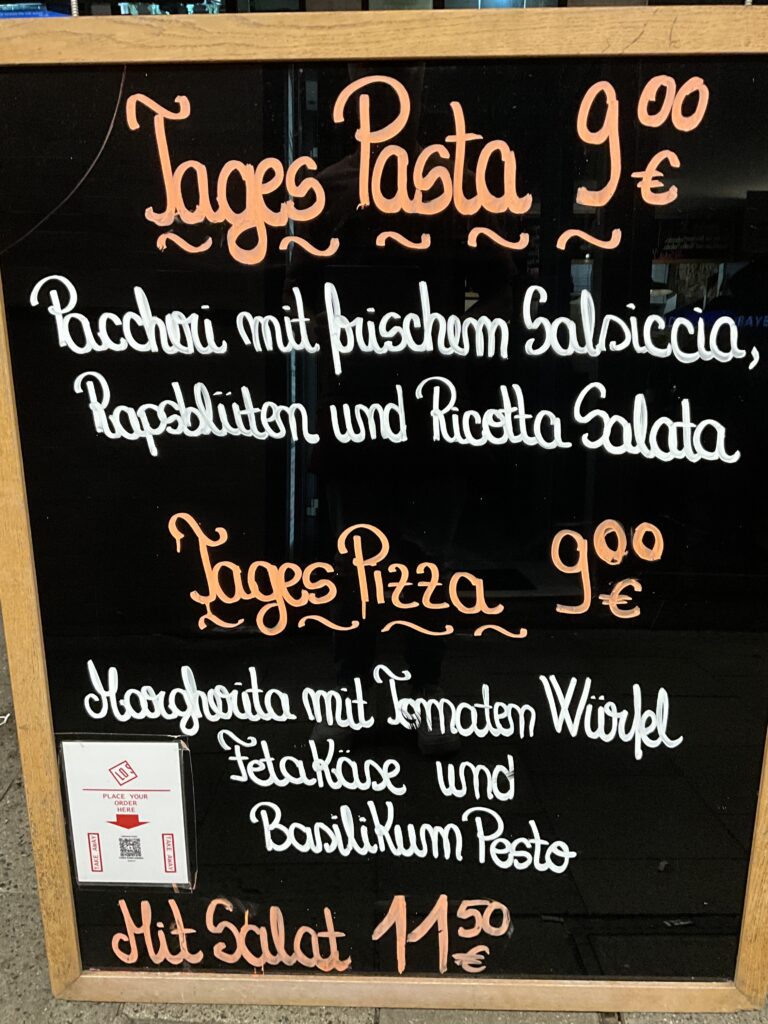 Tages Pasta 9⁰⁰ €
Paccheri mit frischem Salsiccia,
Rapsblüten und Ricotta Salata
Tages Pizza 9⁰⁰ €
Margherita mit Tomaten Würfel
FetaKäse und
BasiliKum Pesto
PLACE YOUR
ORDER
HERE
TAKE AWAY
TAKE AWAY
Mit Salat 11⁵⁰ €